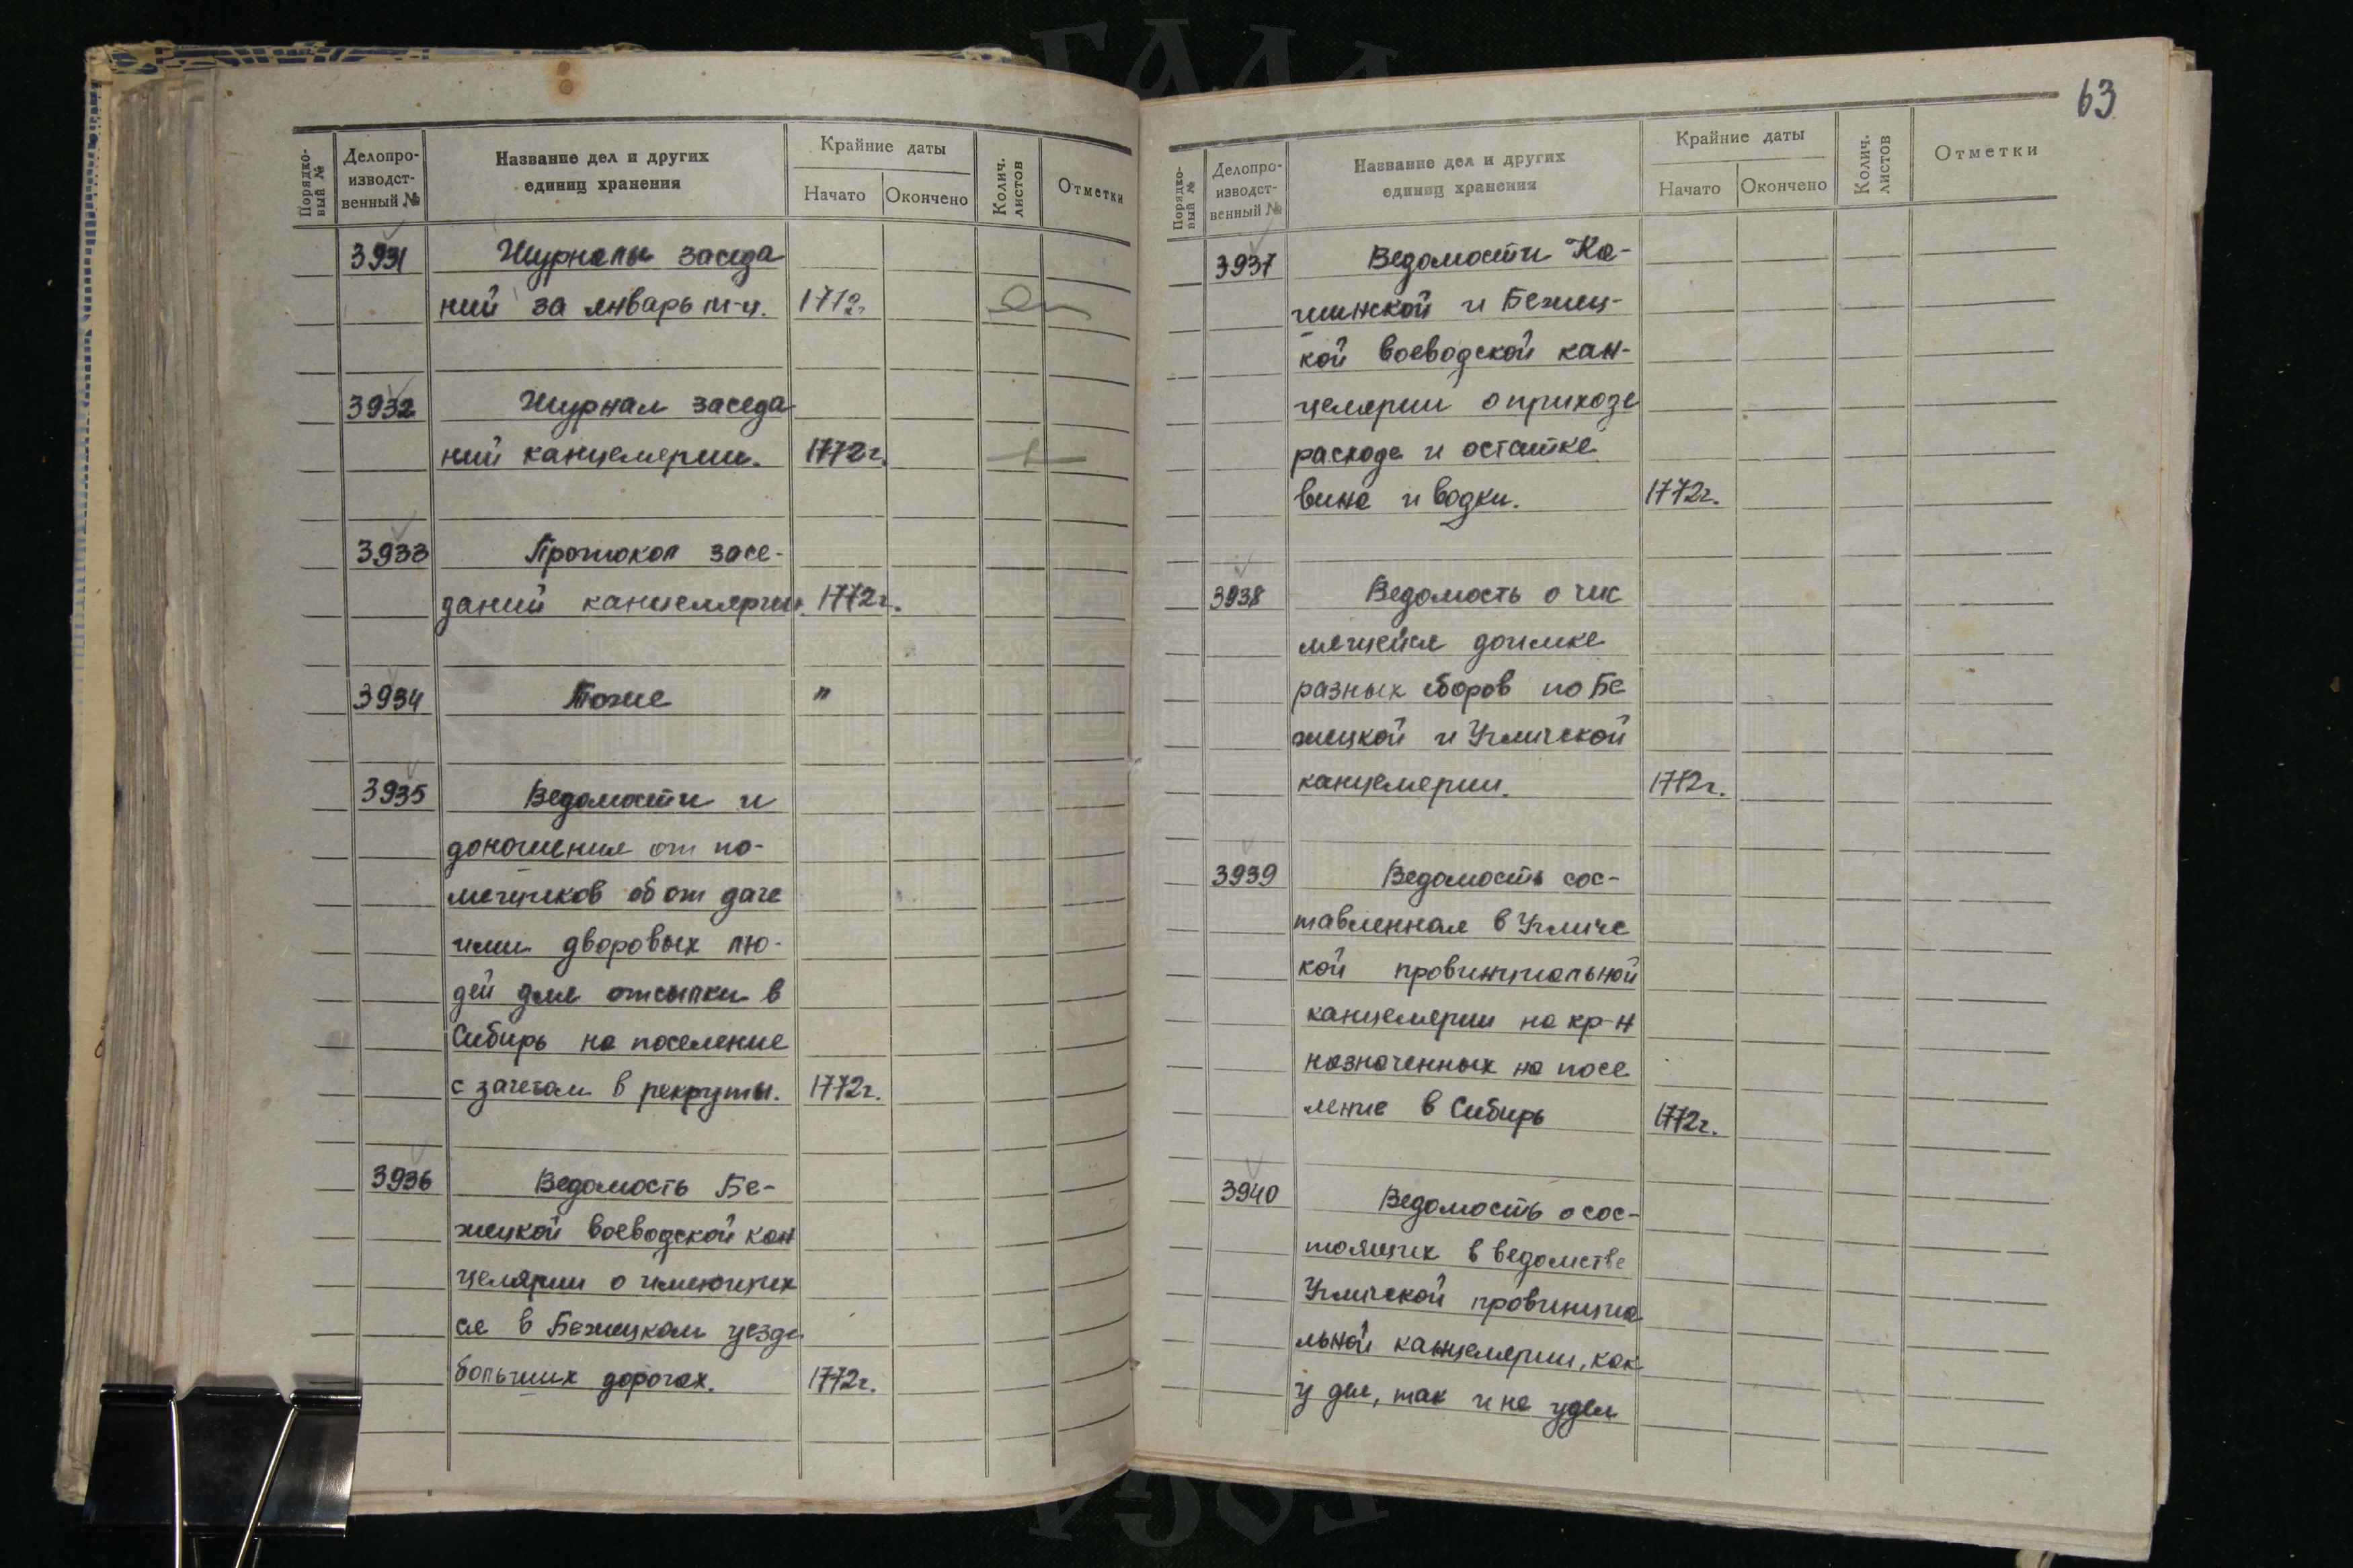 Порядко-
вый №
Делопро-
изводст-
венный №
Название дел и других
единиц хранения
Крайние даты
Начато
Окончено
Колич.
листов
Отметки
3931 Журналы заседа
ний за январь м-ц. 1772г.
3932 Журнал заседа
ний канцелярии. 1772г.
3933 Протокол засе-
даний канцелярии. 1772г.
3934 Тоже "
3935 Ведомости и
доношения от по-
мещиков об от даче
ими дворовых лю-
дей для отсылки в
Сибирь на поселение
с зачетом в рекруты. 1772г.
3936 Ведомость Бе-
жецкой воеводской кан
целярии о имеющих
ся в Бежецком уезде
больших дорогах. 1772г.
63
Порядко-
вый №
Делопро-
изводст-
венный №
Название дел и других
единиц хранения
Крайние даты
Начато
Окончено
Колич.
листов
Отметки
3937 Ведомости Ка-
шинской и Бежец-
кой воеводской кан-
целярии о приходе
расходе и остатке
вина и водки. 1772г.
3938 Ведомость о чис
лящейся доимке
разных сборов по Бе
жецкой и Угличской
канцелярии. 1772г.
3939 Ведомость сос-
тавленная в Угличс
кой провинциальной
канцелярии на кр-н
назначенных на посе
ление в Сибирь 1772г.
3940 Ведомость о сос-
тоящих в ведомстве
Угличской провинциа
льной канцелярии, как
у дел, так и не у дел